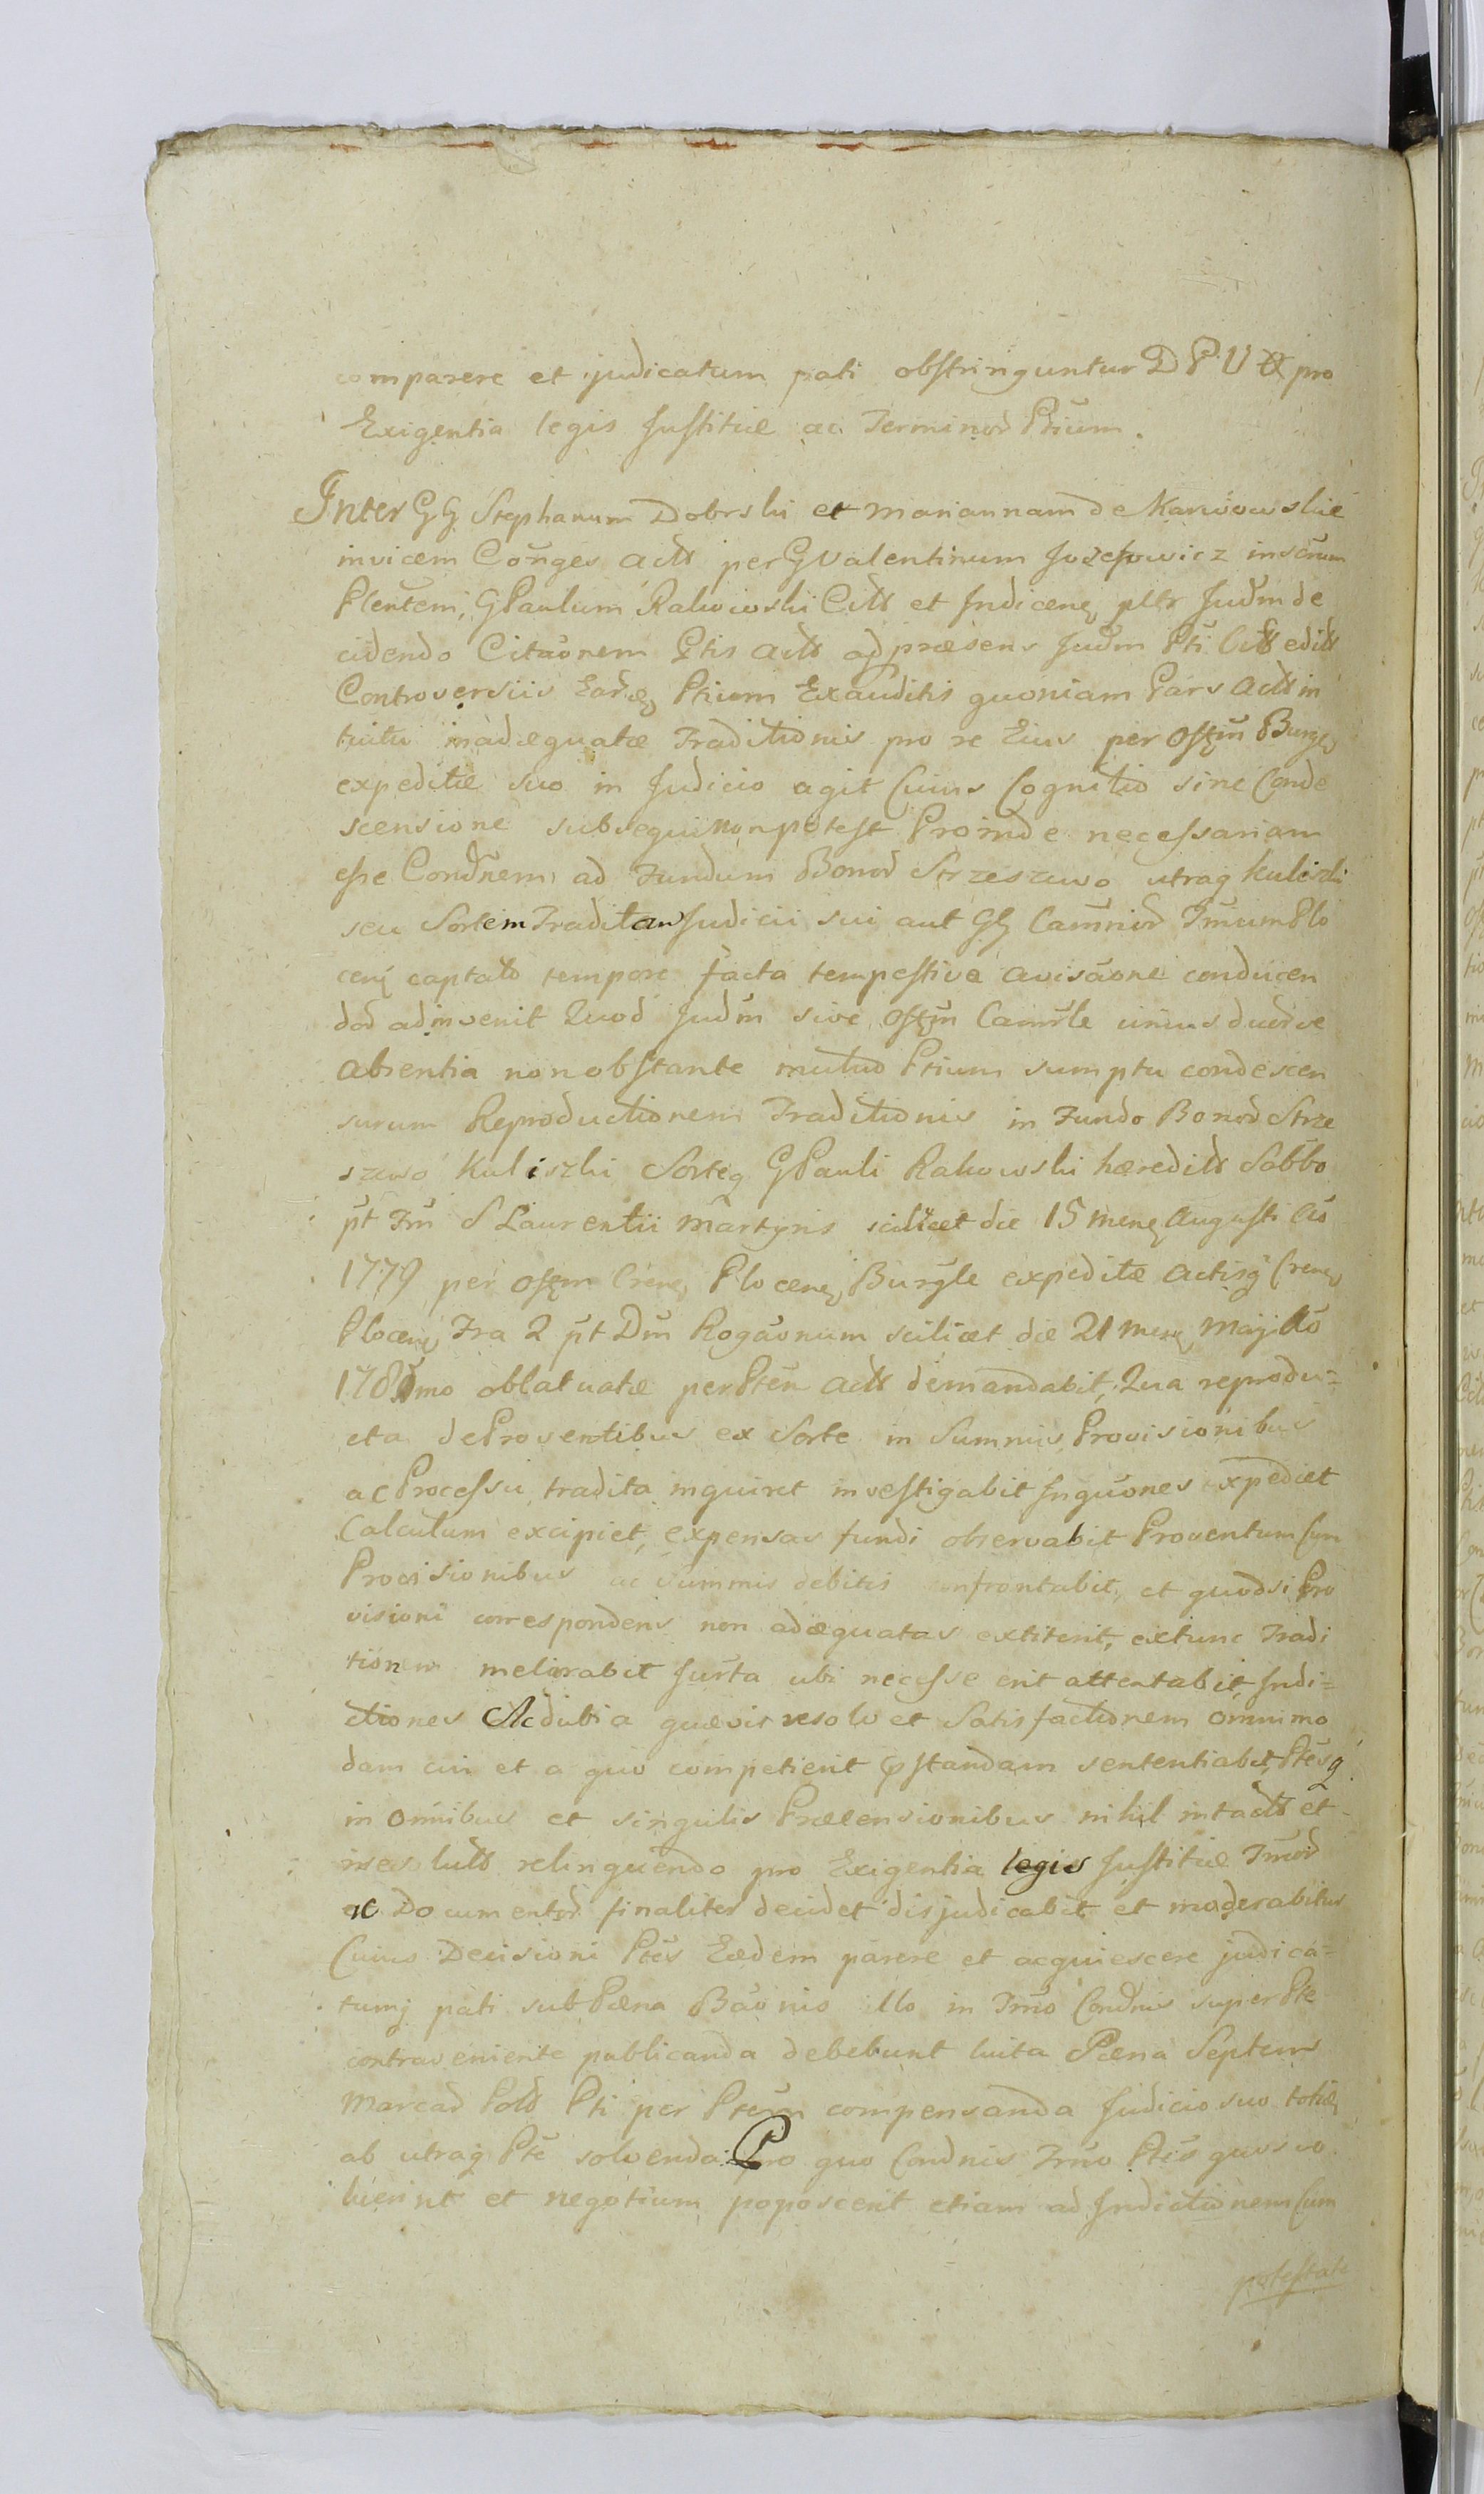 comparere et judicatum pati obstringuntur D P U pro
Exigentia legis Justitiæ ac Terminor Ptium.
Inter GG Stephanum Dobrski et Mariannam de Karwowskie
invicem Conges Act per G Valentinum Jozefowicz
Plentem, G Paulum Rakowski Citt et Indicenq pltr Judm de
cidendo Citaonem Ptis Act ad præsens Judm Pti Citt edit
Controversiis Ear Ptium Exauditis quoniam Pars Act in
tuitu inadæquatæ Traditionis pro re Eius per Offm Burg
expeditæ suo in Judicio agit Cuius Cognitio sine Conde
scensione subsequi non potest Proinde necessariam
esse Condnem ad Fundum Bonor Strzeszewo utraq Kuliszki
seu Sortem Traditam Judicii sui aut GG Camrior Trrum Plo
cen captato tempore facta tempestive avisaone conducen
dor adinvenit Quod Judm sive Offm Camrle unius duerve
absentia non obstante mutuo Ptium sumptu condescen
surum Reproductionem Traditionis in Fundo Bonor Strze
szewo Kuliszki Sorteq G Pauli Rakowski hæredit Sabbo
pt Fm S Laurentii Martyris scilicet die 15 menq Augusti Ao
1779 per Offm Crenq Plocenq Burgle expeditæ Actisq Crenq
Plocenq Fra 2 pt Dm Rogaonum scilicet die 21 menq Maji Ao
1781mo oblatuatæ per Ptem Act demandabit, Qua reprodu=
cta de Proventibus ex Sorte in Summis Provisionibus
ac Processu tradita inquiret investigabit Inquones expediet
Calculum excipiet, expensas fundi observabit Proventum cum
Provisionibus ac summis debitis confrontabit, et quodsi Pro
visioni correspondens non adæquatas extiterit, extunc Tradi
tionem meliorabit Jurta ubi necesse erit attentabit, Indi=
ctiones Ac dubia quævis resolv et Satisfactionem omnimo
dam cui et a quo competierit præstandam sententiabit, Ptesq
in omnibus et singulis Prætensionibus nihil intact et
insolut relinquendo pro Exigentia legis Justitiæ Trror
ac Documentor finaliter decidet disjudicabit et moderabitur
Cuius Decisioni Ptes Eædem parere et acquiescere judica=
tumq pati sub Pæna Baonis illo in Trmo Condnis super Pte
contraveniente publicanda debebunt luita Pæna Septem
Marcar Pold Pti per Ptem compensanda Judicio suo totiq
ab utraq Pte solvenda. Pro quo Condnis Trmo Ptes quos vo
luerint et negotium poposcerit etiam ad Indictionem cum
potestate